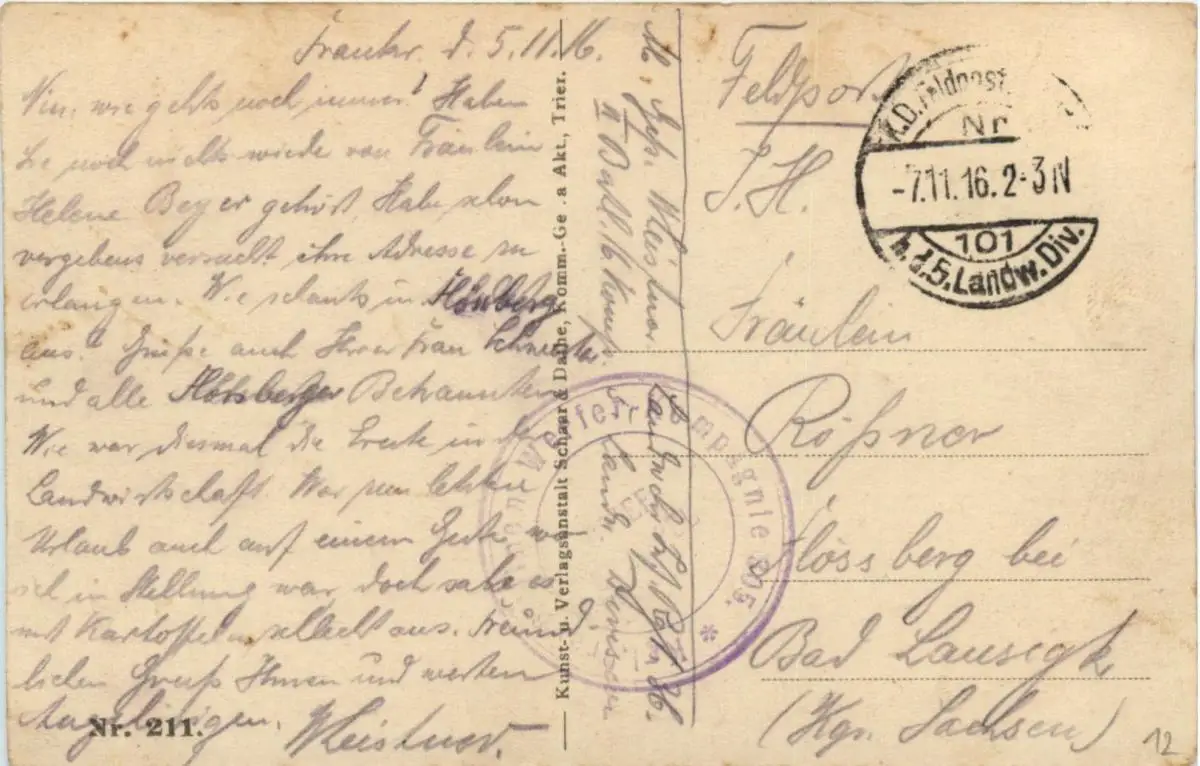 Frankr. d. 5.11.16.
Nun, wie gehts noch immer! Haben
Sie noch nichts wieder von Fräulein
Helene Beyer gehört, Habe schon
vergebens versucht ihre Adresse zu
erlangen. Wie schauts in Flößberg
aus? Grüße auch Ihrer Frau Schwester
und alle Flößberger Bekannten
Wie war diesmal die Ernte in der
Landwirtschaft. War zum letzten
Urlaub auch auf einem Gute wo
ich in Stellung war, doch sahe es
mit Kartoffeln schlecht aus. Freund-
lichen Gruß Ihnen und werten
Angehörigen.
W. Leistner.
Nr. 211.
Kunst- u. Verlagsanstalt Schaar & Dathe, Komm.-Ges. a. Akt., Trier.
Gefr. W. Leistner
II Batl. 6 Komp.
Landw.
Feldpost
S. H.
Fräulein
Rößner
Flössberg bei
Bad Lausigk
(Kgr. Sachsen)
K.D. Feldpost
Nr
-7.11.16. 2-3 N
101
d. 5. Landw. Div.
Kompagnie 305. *
12